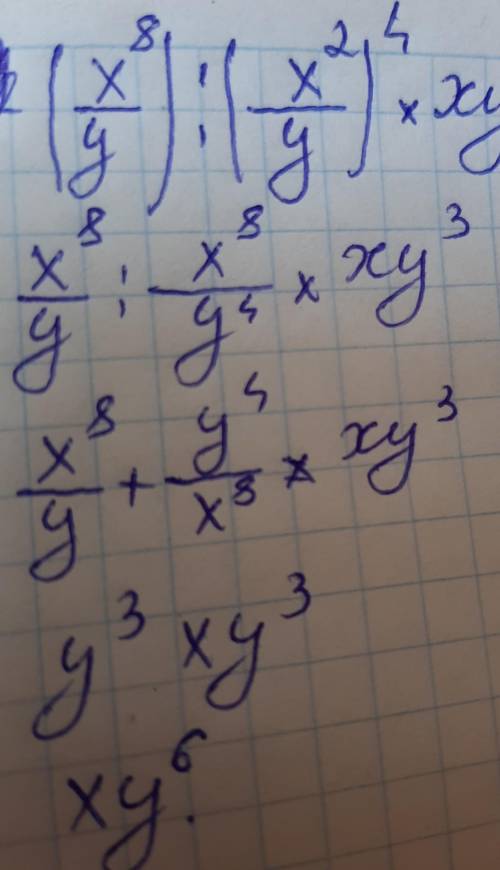 (x⁸/y) : (x²/y)⁴ × xy
x⁸/y : x⁸/y⁴ × xy³
x⁸/y + y⁴/x⁸ × xy³
y³ xy³
xy⁶.